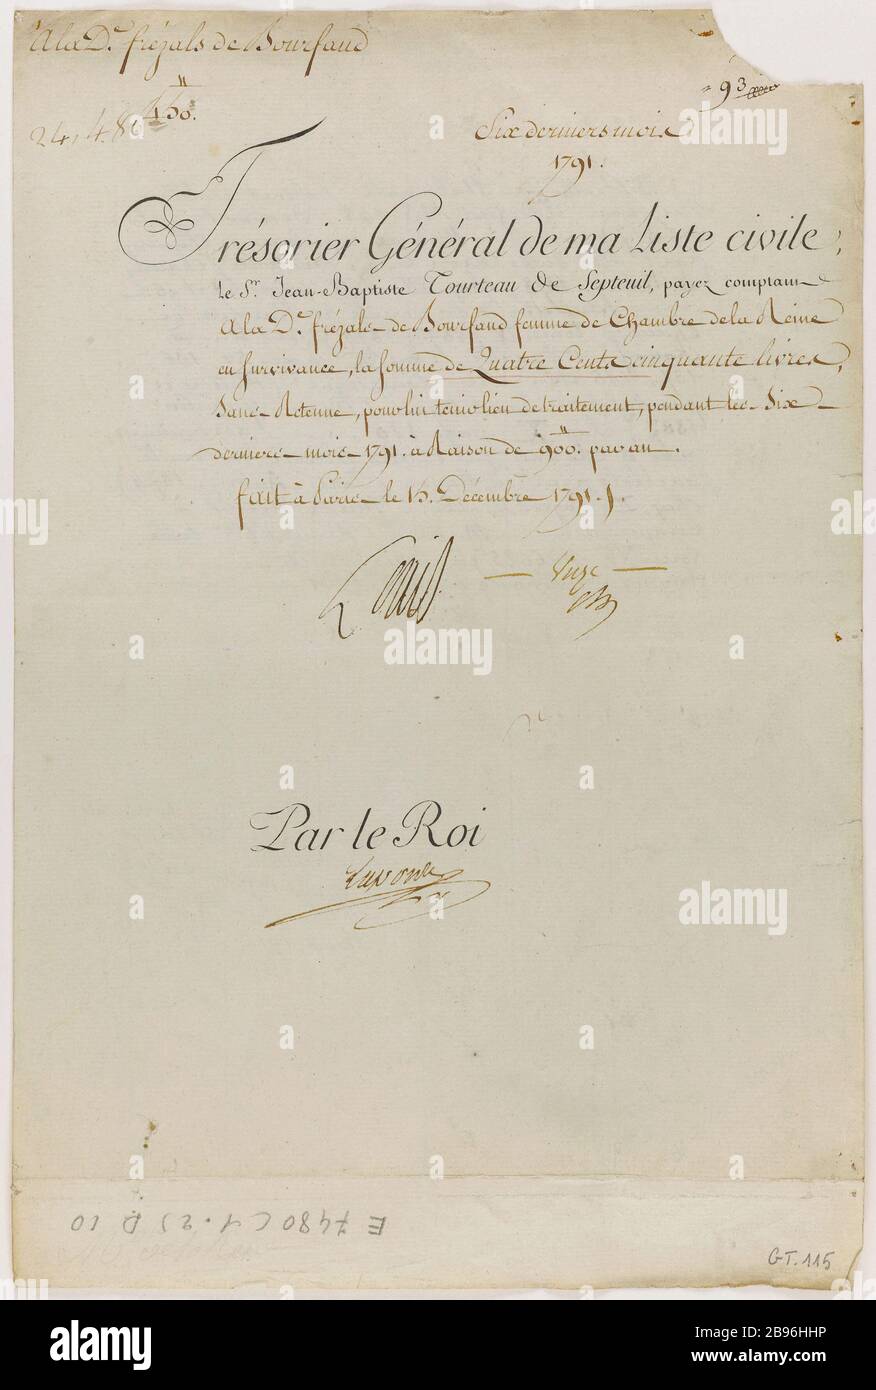 A la De. frézals de Bourfaud
450.#
24, 4. 86
93
Six derniers mois
1791.
Trésorier Général de ma Liste civile,
le Sr. Jean-Baptiste Tourteau de Septeuil, payez comptant
A la De. frézals de Bourfaud femme de Chambre de la Reine
en survivance, la somme de Quatre Cents cinquante livres,
Sans Retenue, pour lui tenir lieu de traitement, pendant les Six
derniers mois 1791. à Raison de 900.# par an.
fait à Paris le 15. Décembre 1791.
Louis
Par le Roi
Laporte
E 7480 C 1. 25 D 10
GT. 115
alamy
alamy
Image ID: 2B96HHP
www.alamy.com